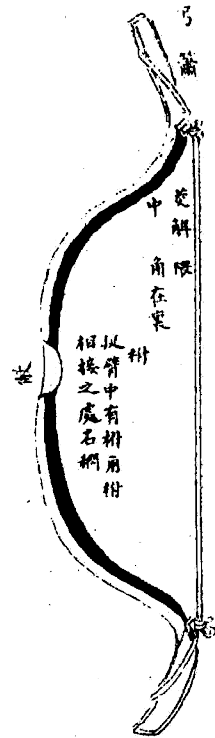 弓簫
茭解
隈
中
角在裏
柎
臂中有柎兩柎
相接之處名